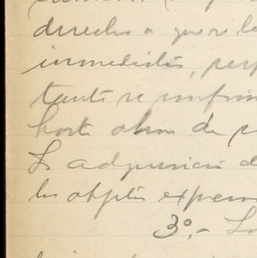 derecho a que se la
inmediatas, perf
tante se confirm
hasta obras de
La adquisición d
los objetos expresa
3º.- La